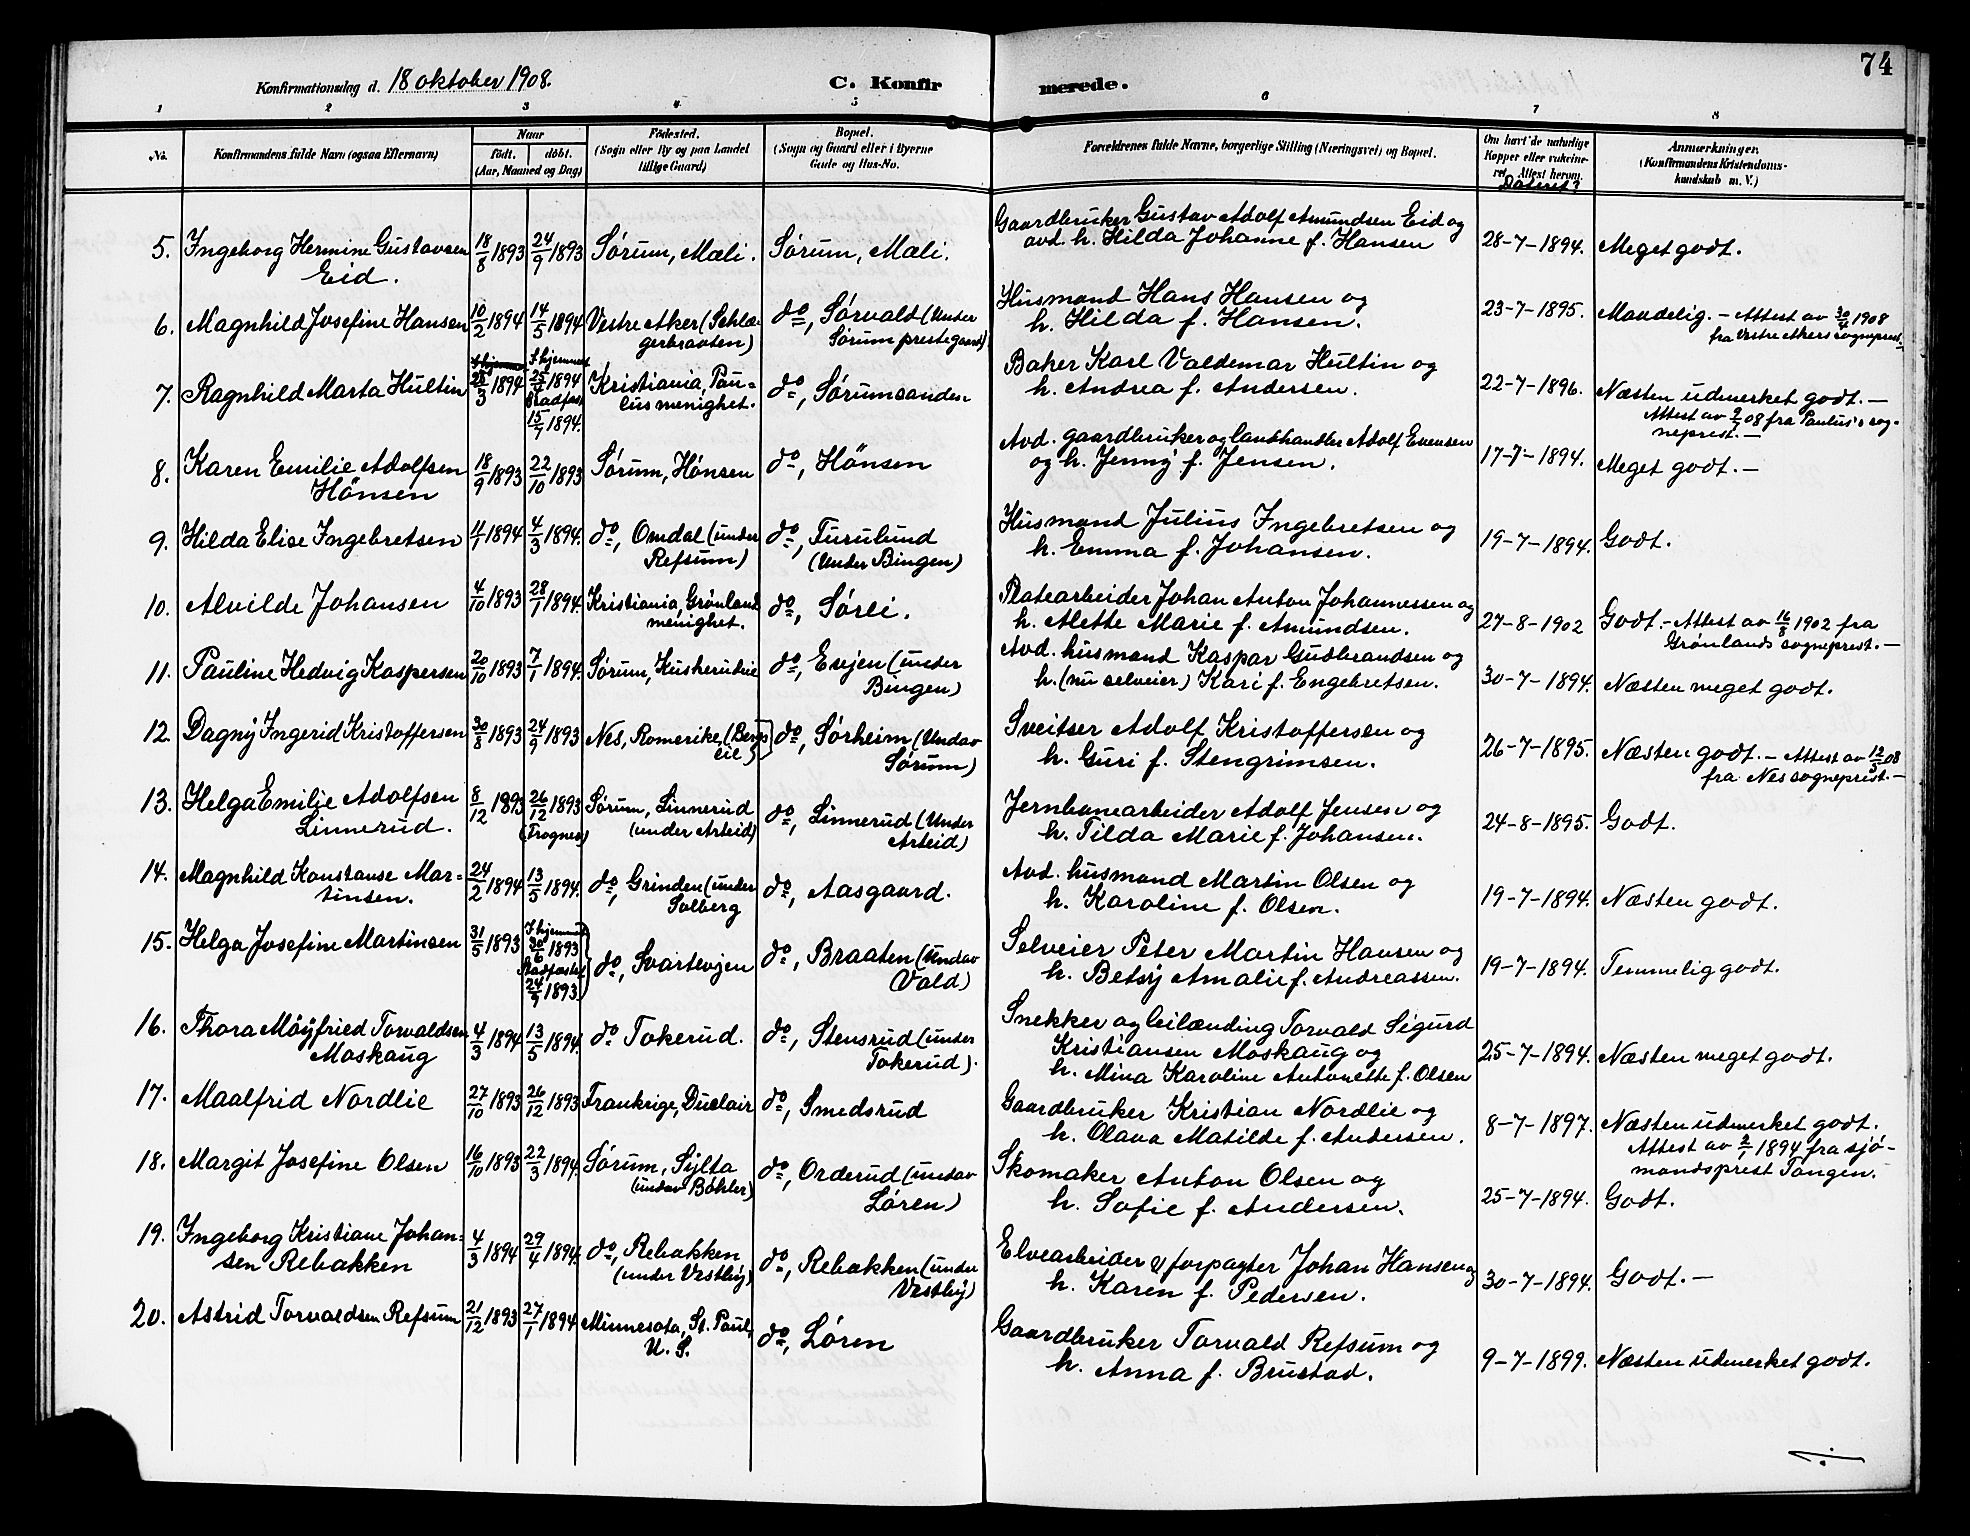 74
Konfirmationsdag d. 18 oktober 1908.
C. Konfirmerede.
1 2 3 4 5 6 7 8
No.
Konfirmandens fulde Navn (ogsaa Efternavn)
Naar
født. døbt.
(Aar, Maaned og Dag)
Fødested.
(Sogn eller By og paa Landet
tillige Gaard)
Bopæl.
(Sogn og Gaard eller i Byerne
Gade og Hus-No.
Forældrenes fulde Navne, borgerlige Stilling (Næringsvei) og Bopæl.
Om havt de naturlige
Kopper eller vakcine-
ret. Attest herom.
Dateret?
Anmærkninger.
(Konfirmandens Kristendoms-
kundskab m. V.)
5. Ingeborg Hermine Gustavsen
Eid.
18/8 1893
24/9 1893
Sørum, Mæli.
Sørum, Mæli.
Gaardbruker Gustav Adolf Amundsen Eid og
avd. h. Hilda Johanne f. Hansen
28-7-1894.
Meget godt.
6. Magnhild Josefine Hansen
10/2 1894
14/5 1894
Vestre Aker (Schlæ-
gerbraaten)
do, Sørvald (under
Sørum prestegaard)
Husmand Hans Hansen og
h. Hilda f. Hansen.
23-7-1895.
Maadelig. - Attest av 30/4 1908
fra Vestre Akers sogneprest.
7. Ragnhild Marta Hultin
25/3 1894
I hjemmet
25/3 1894
Stadfæst
15/7 1894.
Kristiania, Pau-
lus menighet.
do, Sørumsanden
Baker Karl Valdemar Hultin og
h. Andrea f. Andersen.
22-7-1896.
Næsten udmerket godt. -
Attest av 2/7 08 fra Paulus's sog-
neprest. -
8. Karen Emilie Adolfsen
Hönsen
18/9 1893
22/10 1893
Sørum, Hönsen
do, Hönsen
Avd. gaardbruker og landhandler Adolf Evensen
og h. Jenny f. Jensen.
17-7-1894.
Meget godt. -
9. Hilda Elise Ingebretsen
11/1 1894
4/3 1894.
do, Omdal (under
Refsum)
do, Furulund
(under Bingen)
Husmand Julius Ingebretsen og
h. Emma f. Johansen.
19-7-1894.
Godt.
10. Alvilde Johansen
4/10 1893
28/1 1894.
Kristiania, Grønland
menighet.
do, Sørli.
Platearbeider Johan Anton Johannessen og
h. Alette Marie f. Amundsen.
27-8-1902
Godt. - Attest av 16/8 1902 fra
Grønlands sogneprest. -
11. Pauline Hedvig Kaspersen
20/10 1893
7/1 1894.
Sørum, Huskerudeie
do, Evjen (under
Bingen)
Avd. husmand Kaspar Gudbrandsen og
h. (nu selveier) Kari f. Engebretsen.
30-7-1894.
Næsten meget godt.
12. Dagny Ingerid Kristoffersen
30/8 1893
24/9 1893
Nes, Romerike, (Bergs
eie)
do, Sørheim (Undav
Sørum)
Sveitser Adolf Kristoffersen og
h. Guri f. Stengrimsen.
26-7-1895.
Næsten godt. - Attest av 12/5 08
fra Nes sogneprest. -
13. Helga Emilie Adolfsen
Linnerud.
8/12 1893
26/12 1893
(Frogner)
Sørum, Linnerud
(under Arteid)
do, Linnerud (Under
Arteid)
Jernbanearbeider Adolf Jensen og
h. Tilda Marie f. Johansen.
24-8-1895.
Godt.
14. Magnhild Konstanse Mar-
tinsen.
24/2 1894
13/5 1894.
do, Grinden (under
Solberg
do, Aasgaard.
Avd. husmand Martin Olsen og
h. Karoline f. Olsen.
19-7-1894.
Næsten godt.
15. Helga Josefine Martinsen
31/5 1893
I hjemmet
30/6 1893
Stadfæstet
24/9 1893.
do, Svartevjen
do, Braaten (Undav
Vald)
Selveier Peter Martin Hansen og
h. Betsy Amalie f. Andreassen.
19-7-1894.
Temmelig godt.
16. Thora Möyfried Torvaldsen
Moskaug
4/3 1894
13/5 1894.
do Tokerud.
do, Stensrud (under
Tokerud).
Snekker og leilænding Torvald Sigurd
Kristiansen Moskaug og
h. Mina Karoline Antonette f. Olsen
25-7-1894.
Næsten meget godt.
17. Maalfrid Nordlie
27/10 1893
26/12 1893
Frankrige, Duclair
do, Smedsrud
Gaardbruker Kristian Nordlie og
h. Olava Matilde f. Andersen.
8-7-1897.
Næsten udmerket godt.
Attest av 2/1 1894 fra sjö-
mandsprest Tangen.
18. Margit Josefine Olsen
16/10 1893
22/3 1894.
Sørum, Sylta
(undav Böhler)
do, Orderud (undav
Løren)
Skomaker Anton Olsen og
h. Sofie f. Andersen.
25-7-1894.
Godt.
19. Ingeborg Kristiane Johan-
sen Rebakken
4/3 1894
29/4 1894.
do, Rebakken
(under Vestby)
do, Rebakken (under
Vestby)
Elvearbeider & forpagter Johan Hansen og
h. Karen f. Pedersen.
30-7-1894.
Godt. -
20. Astrid Torvaldsen Refsum
21/12 1893
27/1 1894
Minnesota, St. Paul,
U. S.
do, Løren
Gaardbruker Torvald Refsum og
h. Anna f. Brustad.
9-7-1899.
Næsten udmerket godt.